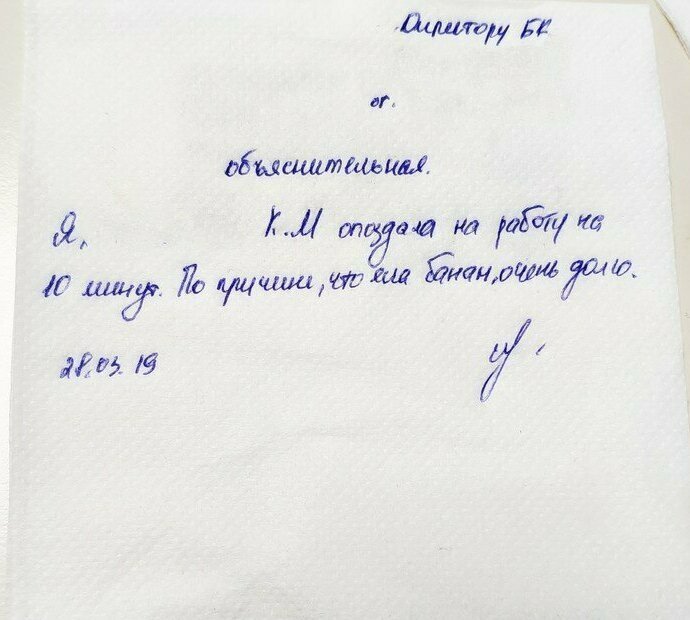 Директору БК
от.
объяснительная.
Я, К.М опоздала на работу на
10 минут. По причине, что ела банан, очень долго.
28.03.19